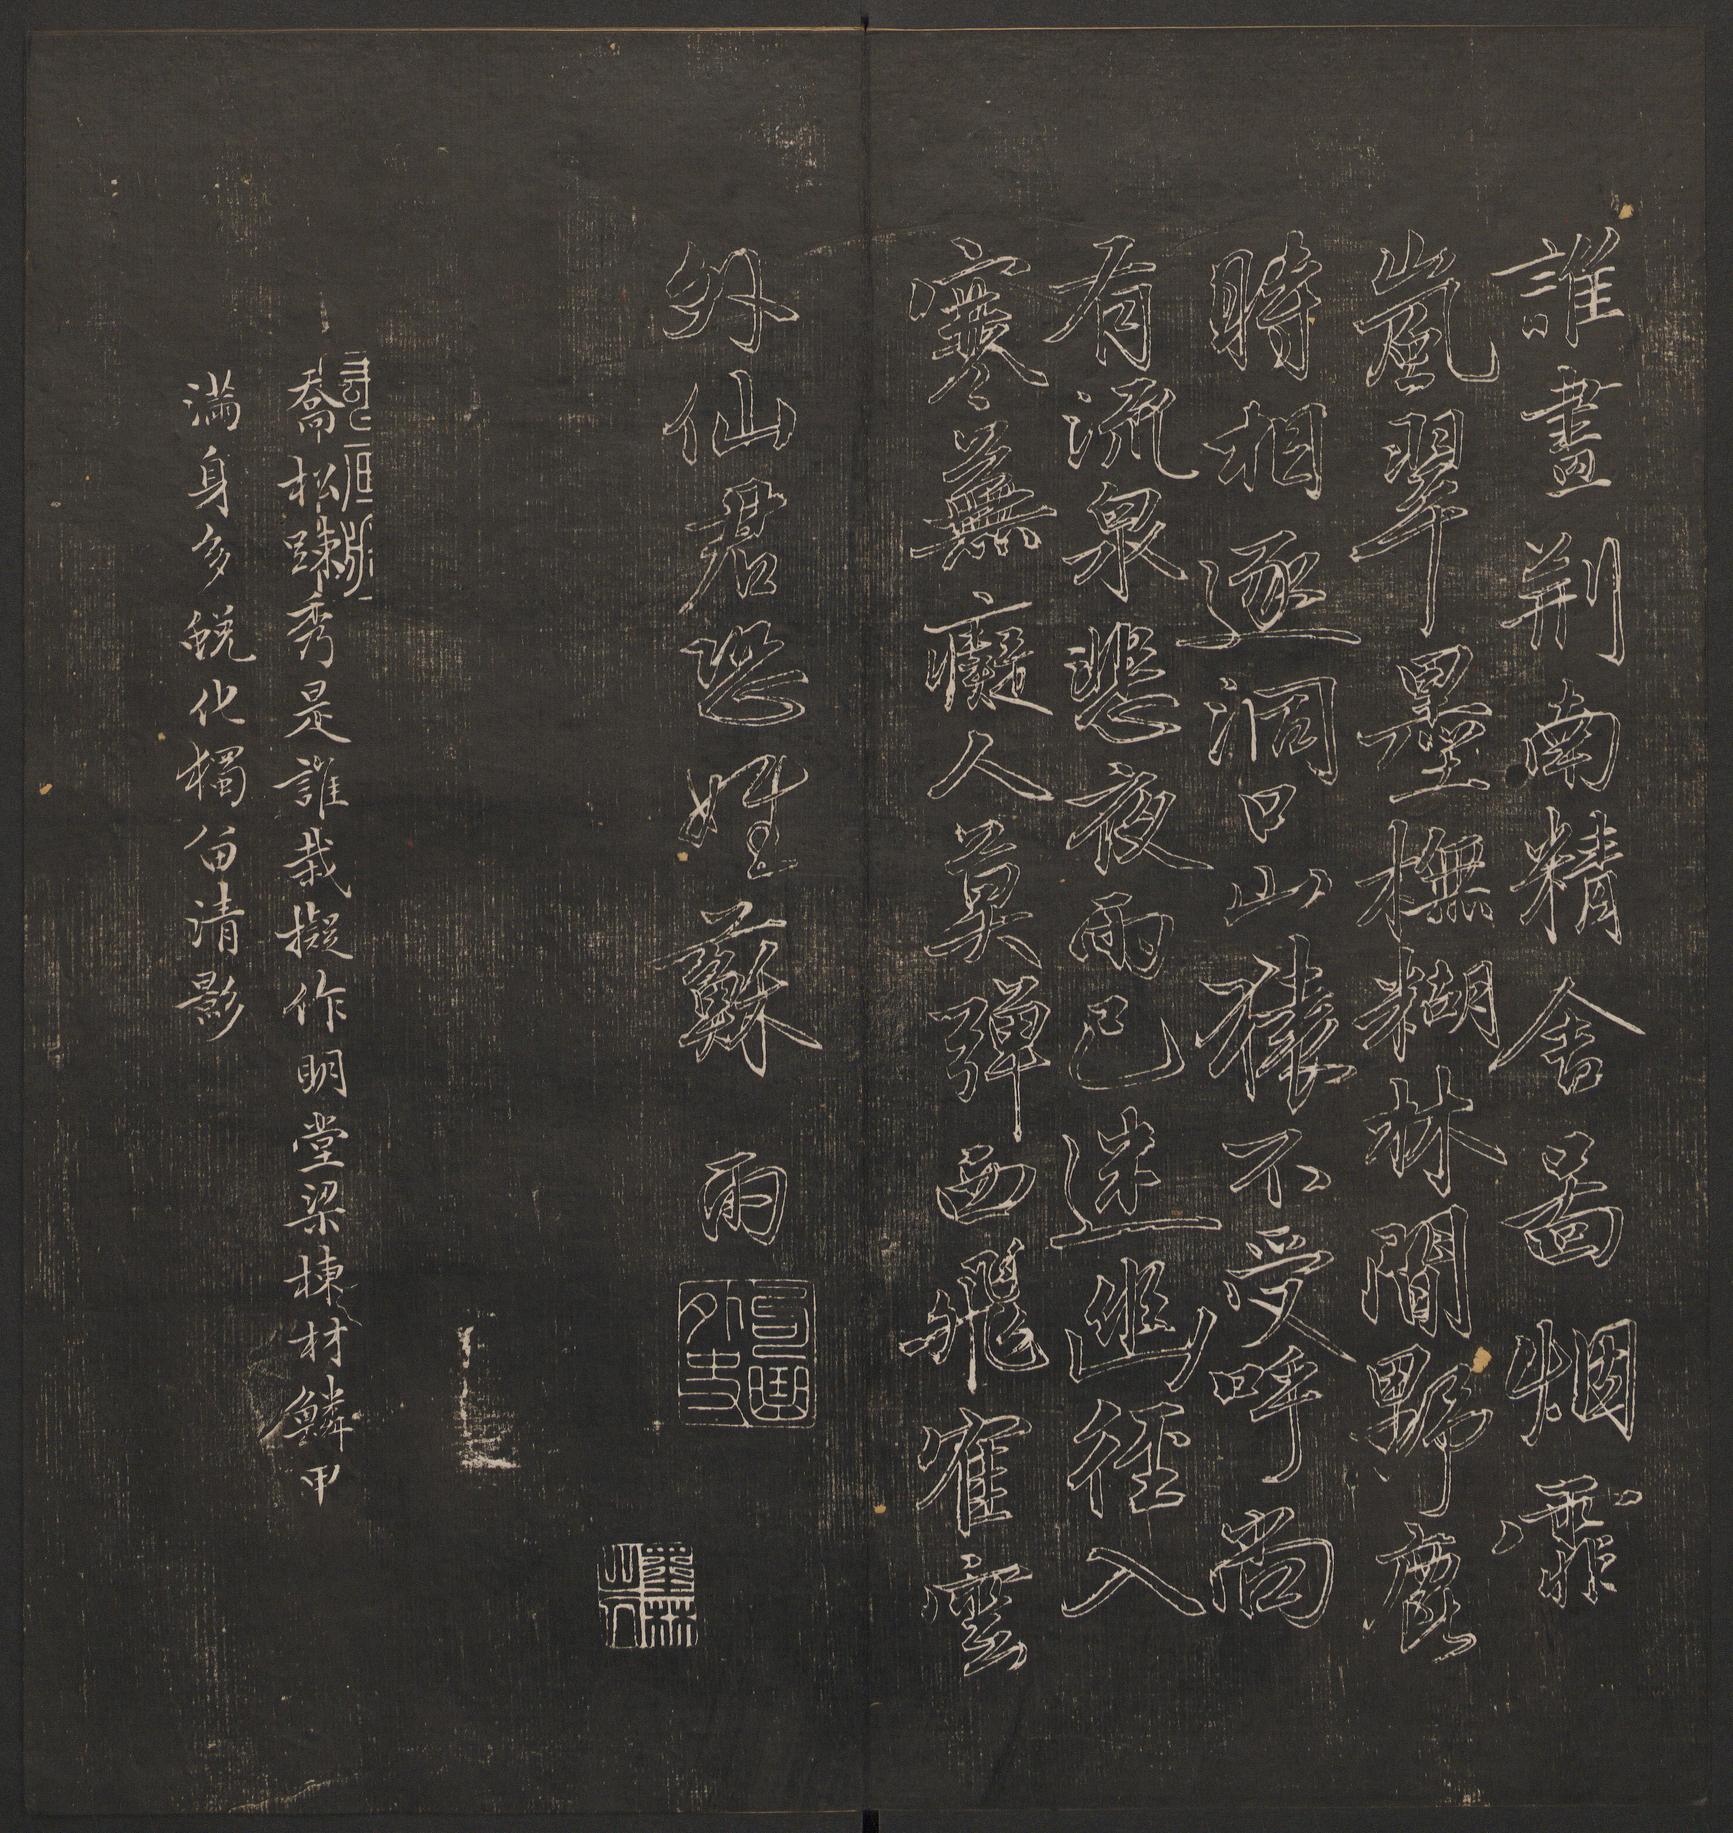 誰畫荆南精舍圖烟霏
嵐翠墨橅糊林間野鹿
時相逐洞口山猿不受呼尚
有流泉悲夜雨已迷幽徑入
寒蕪癡人莫彈西飛隺雲
外仙君恐姓蘇 雨
喬松踈秀是誰栽擬作明堂梁棟材鱗甲
滿身多蛻化獨留清影